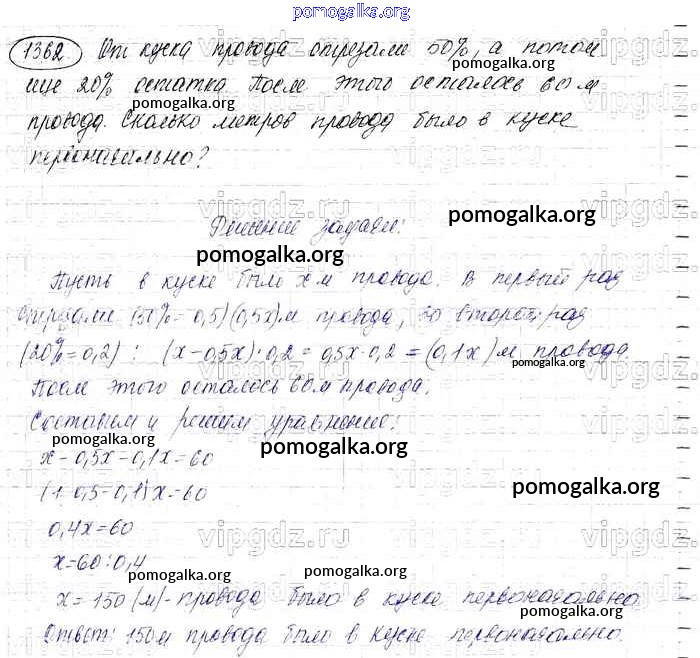 pomogalka.org
1362 От куска провода отрезали 50%, а потом
еще 20% остатка. После этого осталось 60 м
pomogalka.org pomogalka.org
провода. Сколько метров провода было в куске
первоначально?
vipgdz.ru vipgdz.ru vipgdz.ru
Решение задачи:
pomogalka.org
pomogalka.org
Пусть в куске было x м провода. В первый раз
отрезали (50%=0,5) (0,5x) м провода, во второй раз
(20%=0,2) : (x-0,5x)·0,2=0,5x·0,2=(0,1x) м провода.
pomogalka.org
После этого осталось 60 м провода.
Составим и решим уравнение:
pomogalka.org pomogalka.org
x-0,5x-0,1x=60
(1-0,5-0,1)x=60
pomogalka.org
0,4x=60
x=60:0,4
pomogalka.org
x=150 (м)-провода было в куске первоначально.
pomogalka.org
Ответ: 150 м провода было в куске первоначально.